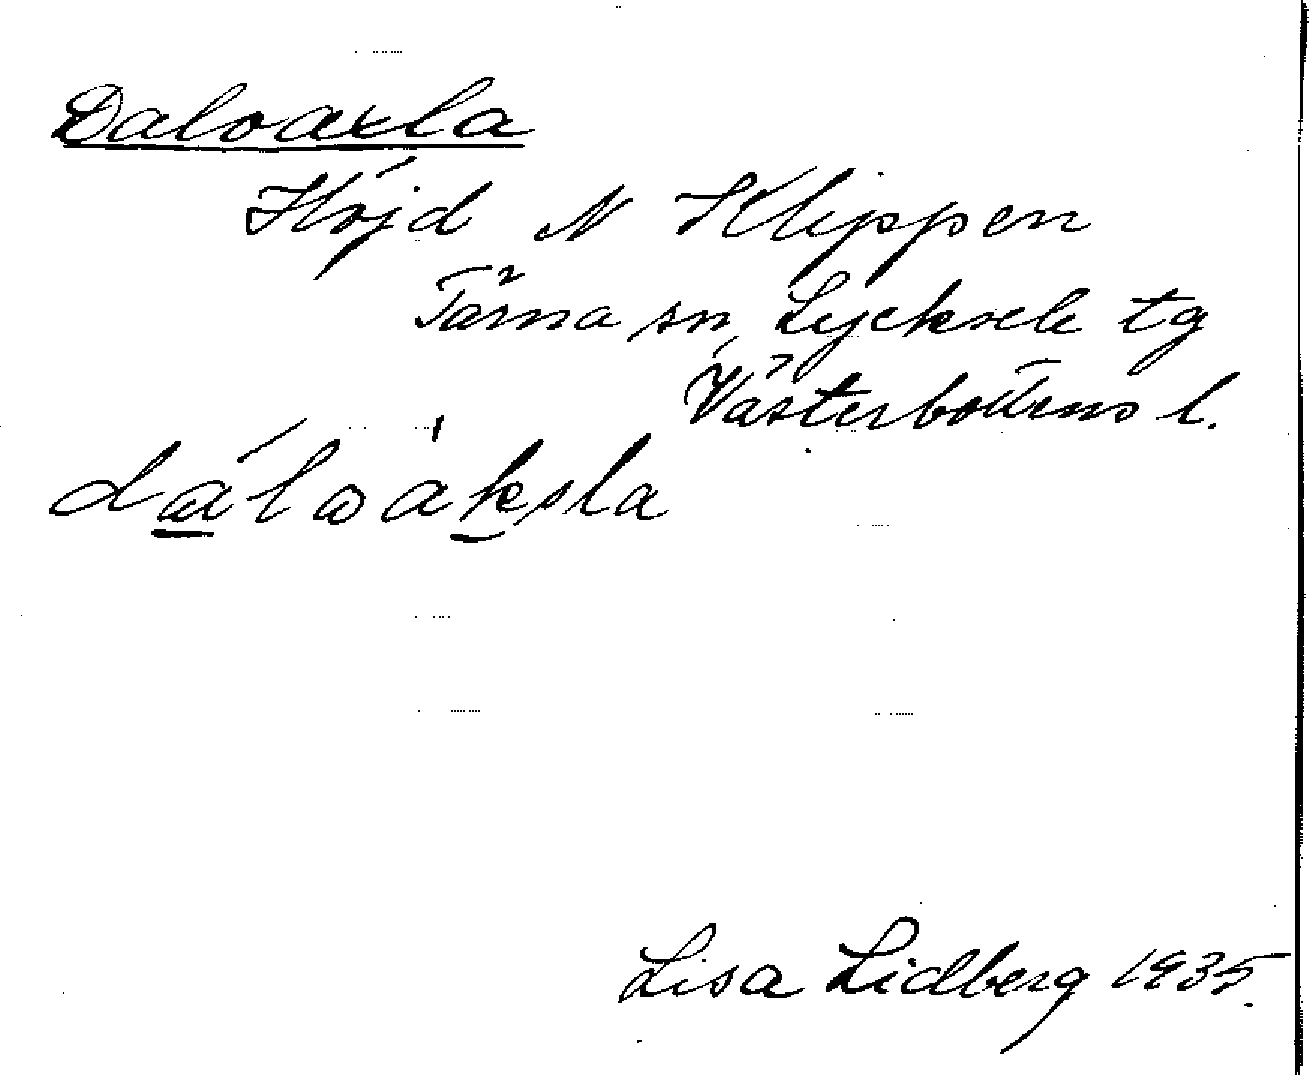 Daloaxla
Höjd N Klippen
Tärna sn, Lycksele tg
Västerbottens l.
dáloáksla
Lisa Lidberg 1935.